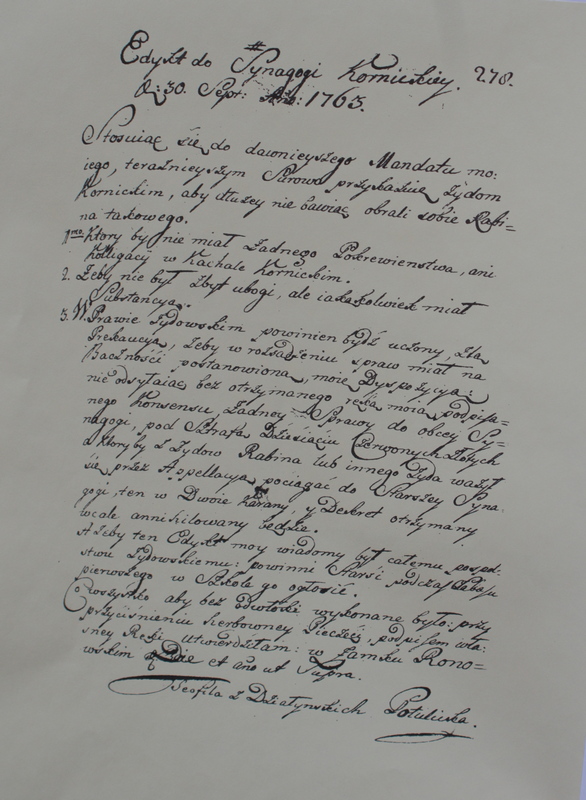 Edykt do Synagogi Kornickiey. 278.
D: 30. Sept: Ao: 1763.
Stosuiąc się do dawnieyszego Mandatu mo:
iego, teraźnieyszym Surowo przykazuię Żydom
Kornickim, aby dłużey nie bawiąc obrali sobie Rabi=
na takowego.
1mo. Ktory by nie miał Żadnego Pokrewienstwa, ani
Kolligacyi w Kachale Kornickim.
2. Żeby nie był zbyt ubogi, ale iakążkolwiek miał
Substancyą.
3. W Prawie Żydowskim powinien bydź uczony, Z tą
Prekaucyą, Żeby w rozsądzeniu spraw miał na
Baczności postanowioną moię Dyspozycyą:
nie odsyłaiąc bez otrzymanego ręką moią podpisa=
nego Konsensu, Żadney Sprawy do obcey Sy=
nagogi, pod Sztrafą Dziesiąciu Czerwonych Złotych
a Ktoryby z Żydow Rabina lub innego Żyda ważył
się przez Appellacyą pociągać do Starszey Syna:
gogi, ten w Dwoie Karany, y Dekret otrzymany
wcale annihilowany będzie.
Ażeby ten Edykt moy wiadomy był całemu pospol:
stwu Żydowskiemu: powinni Starsi podczas Sabasu
pierwszego w Szkole go ogłosić.
Co wszystko aby bez odwłoki wykonane było: przy
przyciśnieniu herbowney Pieczęci, podpisem wła:
sney Ręki utwierdzam: w Zamku Rono=
wskim Die et ano ut Supra.
Teofila z Działynskich Potulicka.